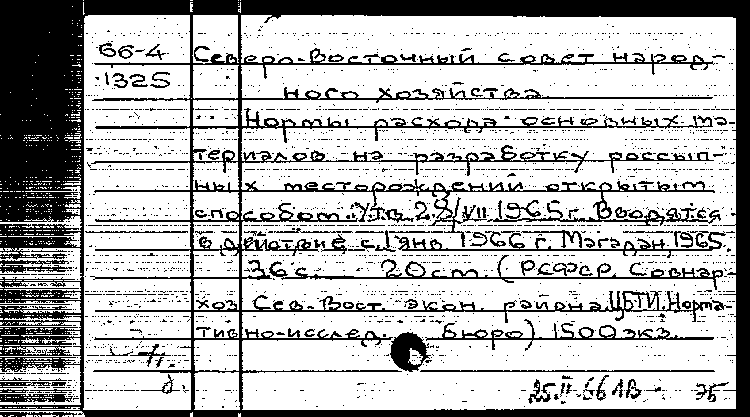 66-4
1325
Северо-Восточный совет народ-
ного хозяйства
Нормы расхода основных ма-
териалов на разработку россып-
ных месторождений открытым
способом. Утв. 28/VII 1965г. Вводятся
в действие с 1 янв. 1966 г. Магадан, 1965.
36 с. 20 см. (РСФСР. Совнар-
хоз Сев.-Вост. экон. района. ЦБТИ. Норма-
тивно-исслед. бюро). 1500 экз.
25.II.66 1В 35